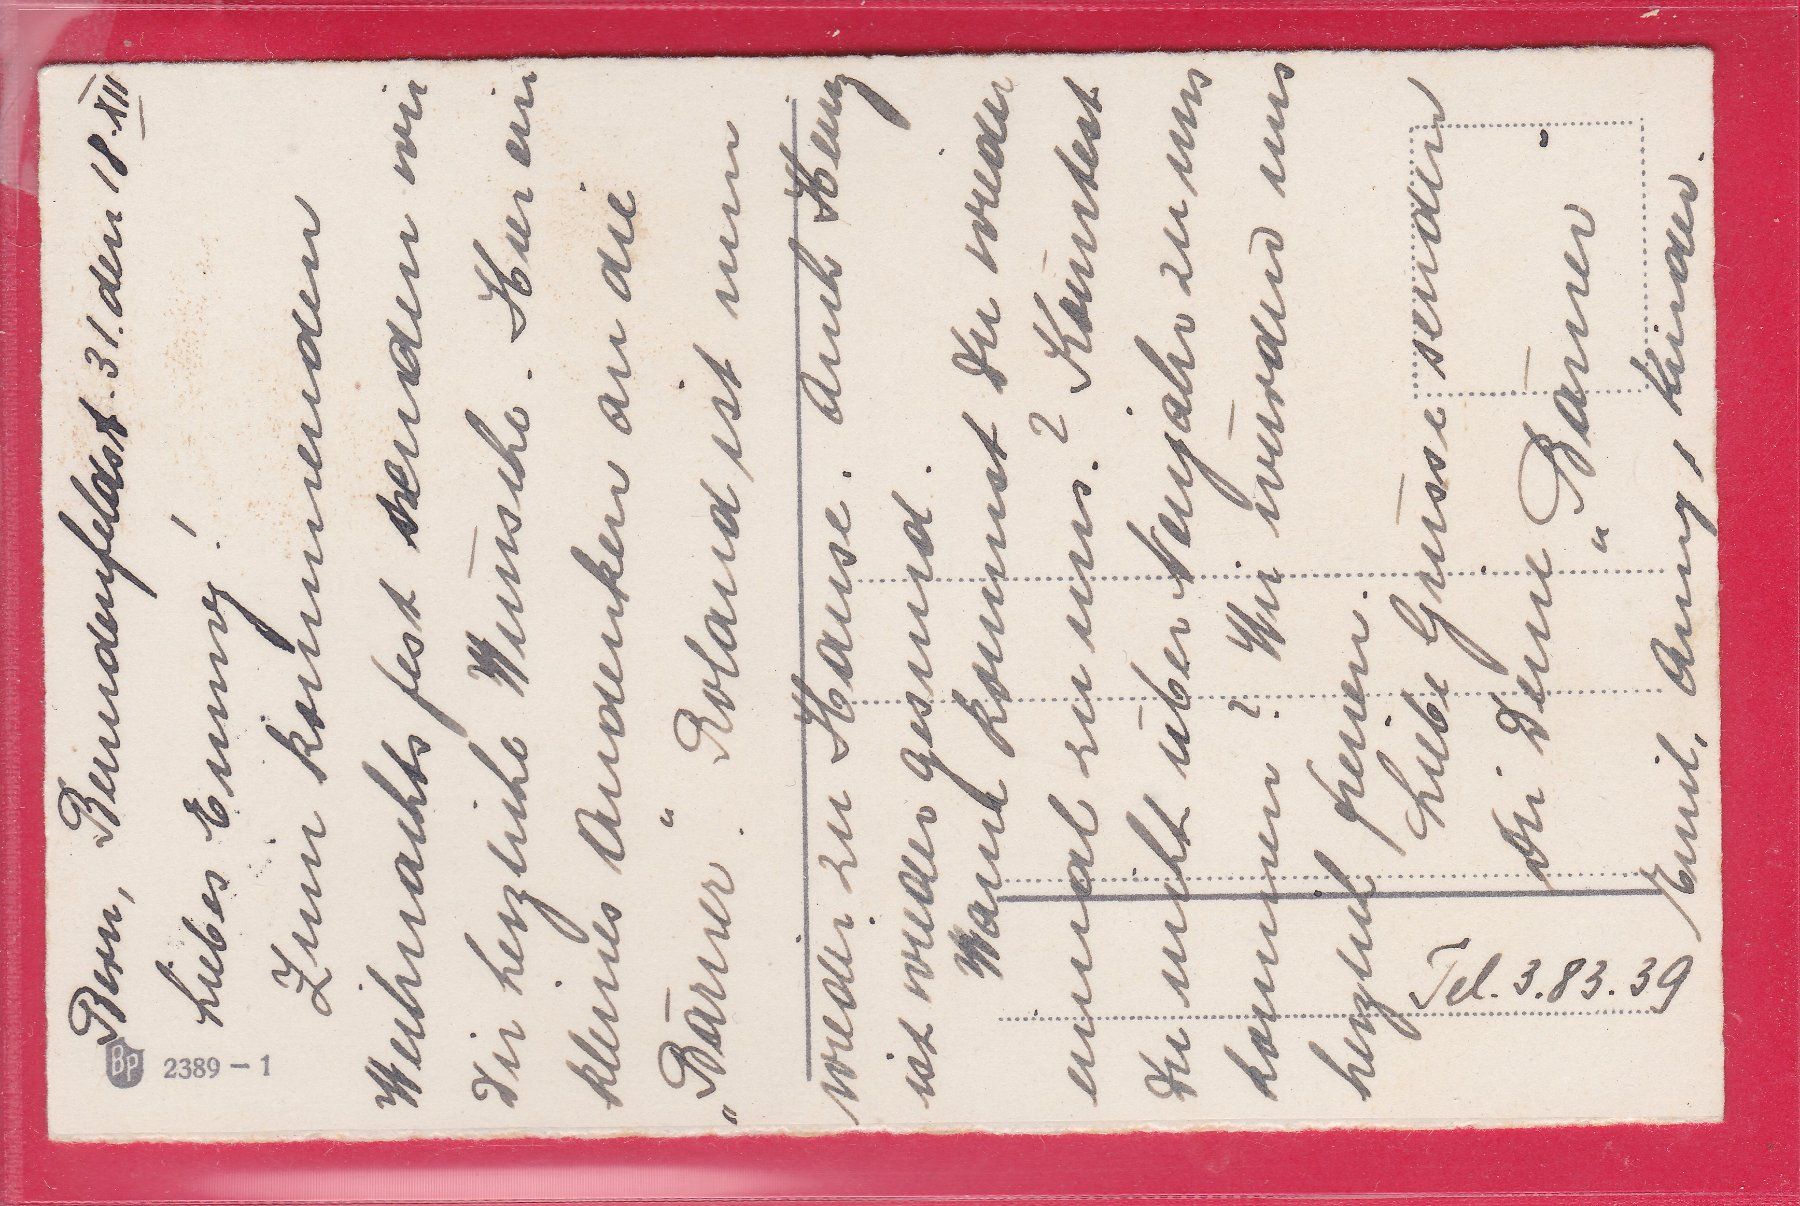 Bern, Bernadenfeldstr. 31. den 18. XII
Liebes Emmy!
Zum kommenden
Weihnachtsfest senden wir
Dir herzliche Wünsche. Hier ein
kleines Andenken an die
„Bärner". Roland ist nun
wieder zu Hause. Auch Heinz
ist wieder gesund.
Wann kommst Du wieder
einmal zu uns.? Könntest
Du nicht über Neujahr zu uns
kommen? Wir würden uns
herzlich freuen.
Liebe Grüsse senden
Dir Deine „Bärner"
Emil, Anny, Kinder.
Tel. 3.83.39
BP 2389 – 1